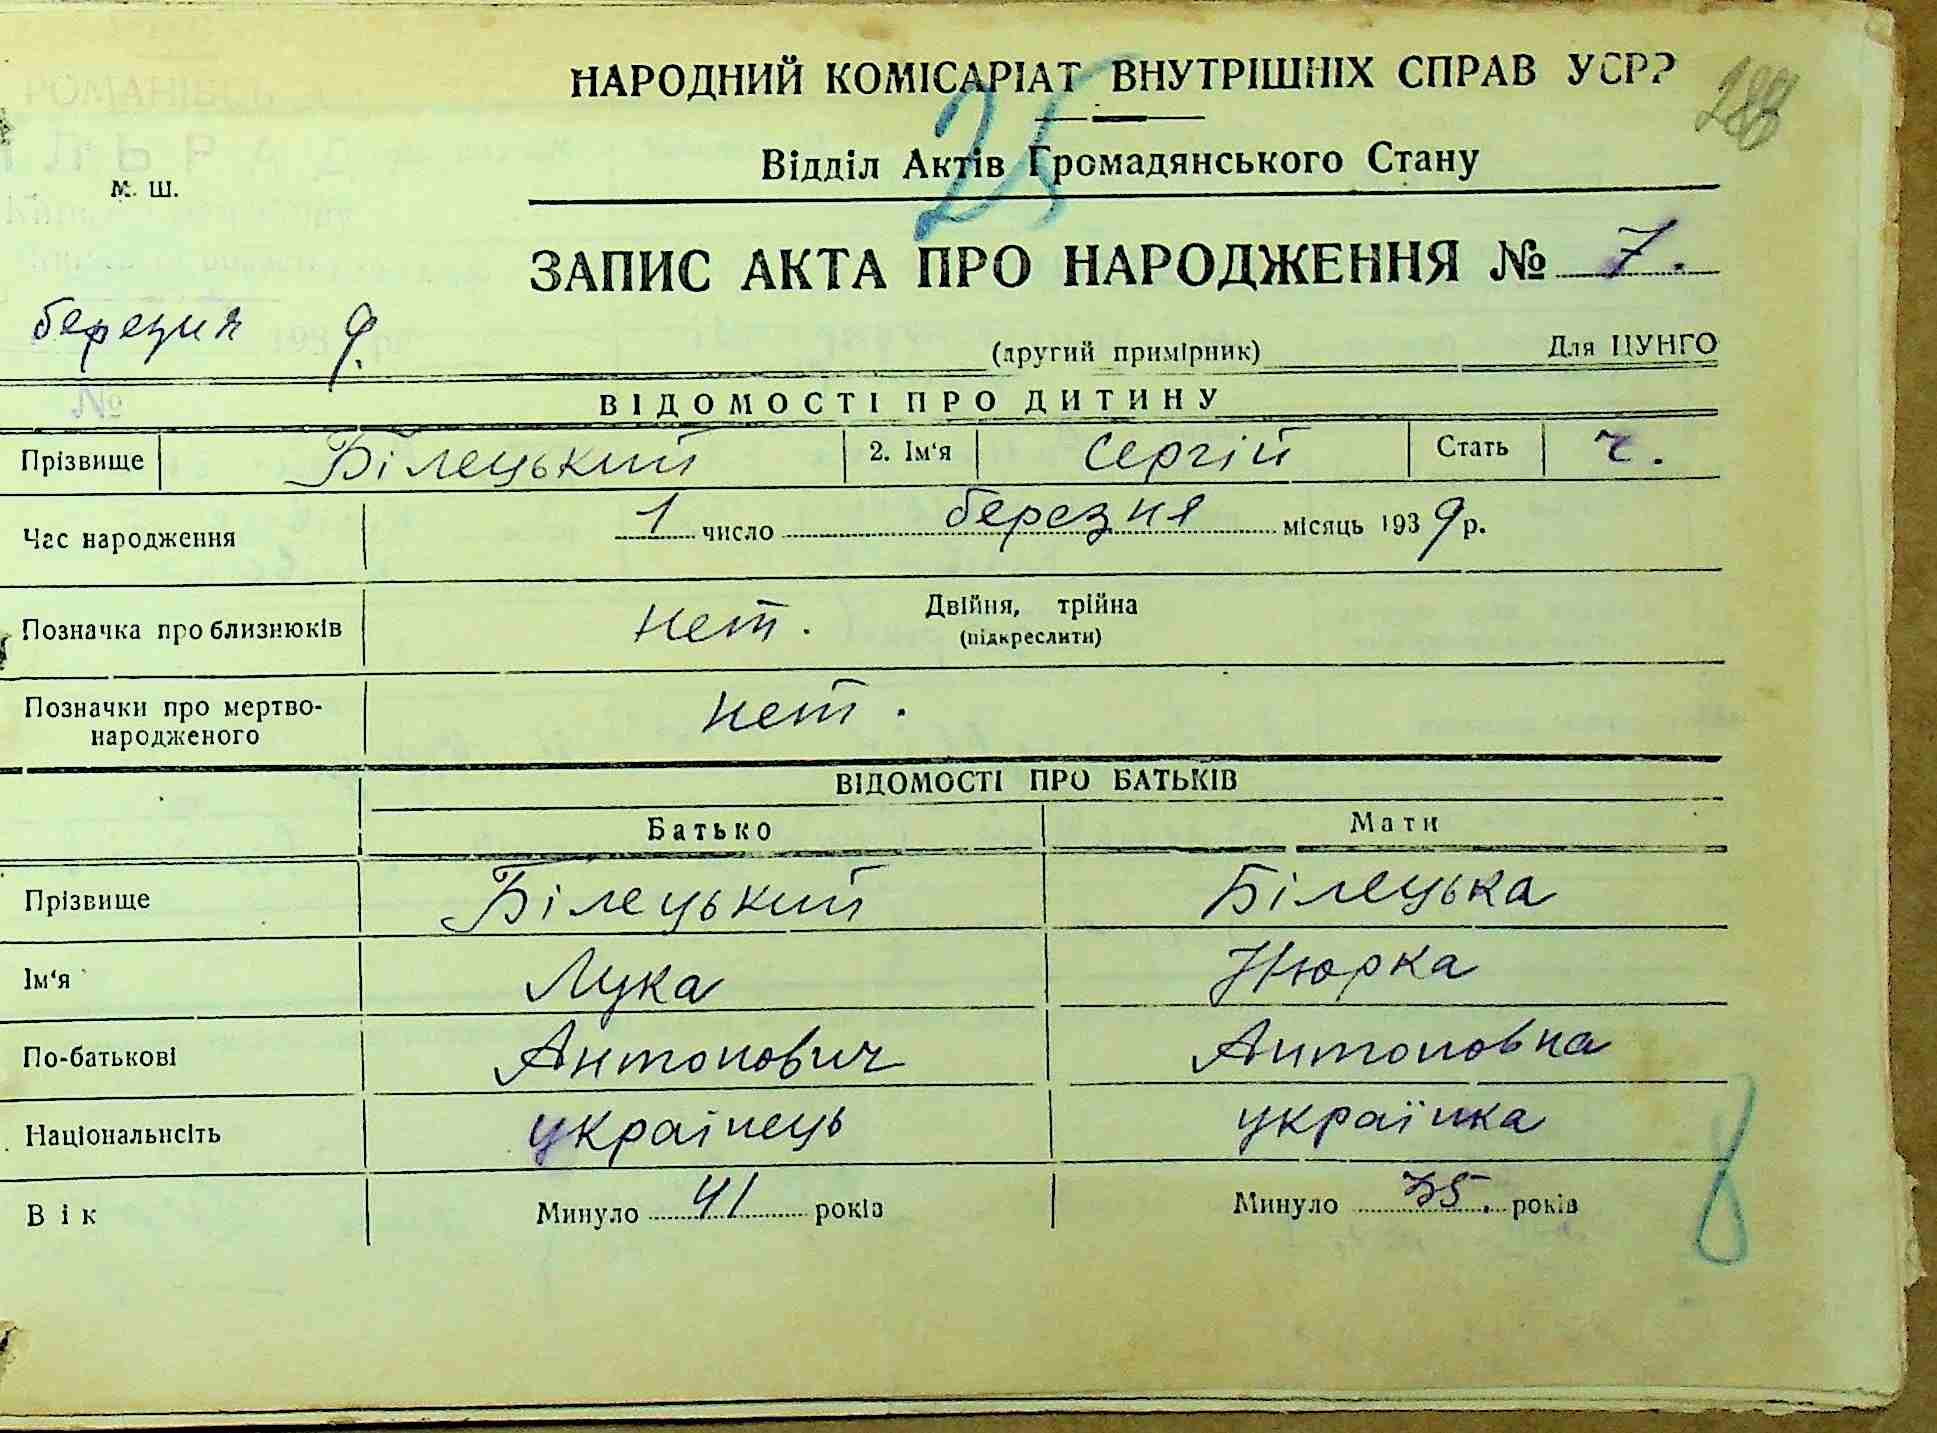 НАРОДНИЙ КОМІСАРІАТ ВНУТРІШНІХ СПРАВ УСРР
25
Відділ Актів Громадянського Стану
м. ш.
ЗАПИС АКТА ПРО НАРОДЖЕННЯ № 7.
березня 9.
(другий примірник) Для ЦУНГО
№
ВІДОМОСТІ ПРО ДИТИНУ
Прізвище Білецький 2. Ім'я Сергій Стать ч.
Час народження 1 число березня місяць 1939 р.
Позначка про близнюків нет. Двійня, трійна
(підкреслити)
Позначки про мертво-
народженого нет.
ВІДОМОСТІ ПРО БАТЬКІВ
Батько Мати
Прізвище Білецький Білецька
Ім'я Лука Нюрка
По-батькові Антонович Антоновна
Національнсіть українець українка
Вік Минуло 41 років Минуло 35. років
8